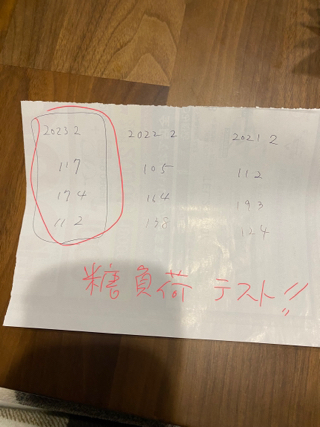 2023 2 2022 2 2021 2
117 105 112
174 114 193
112 138 124
糖負荷 テスト!!